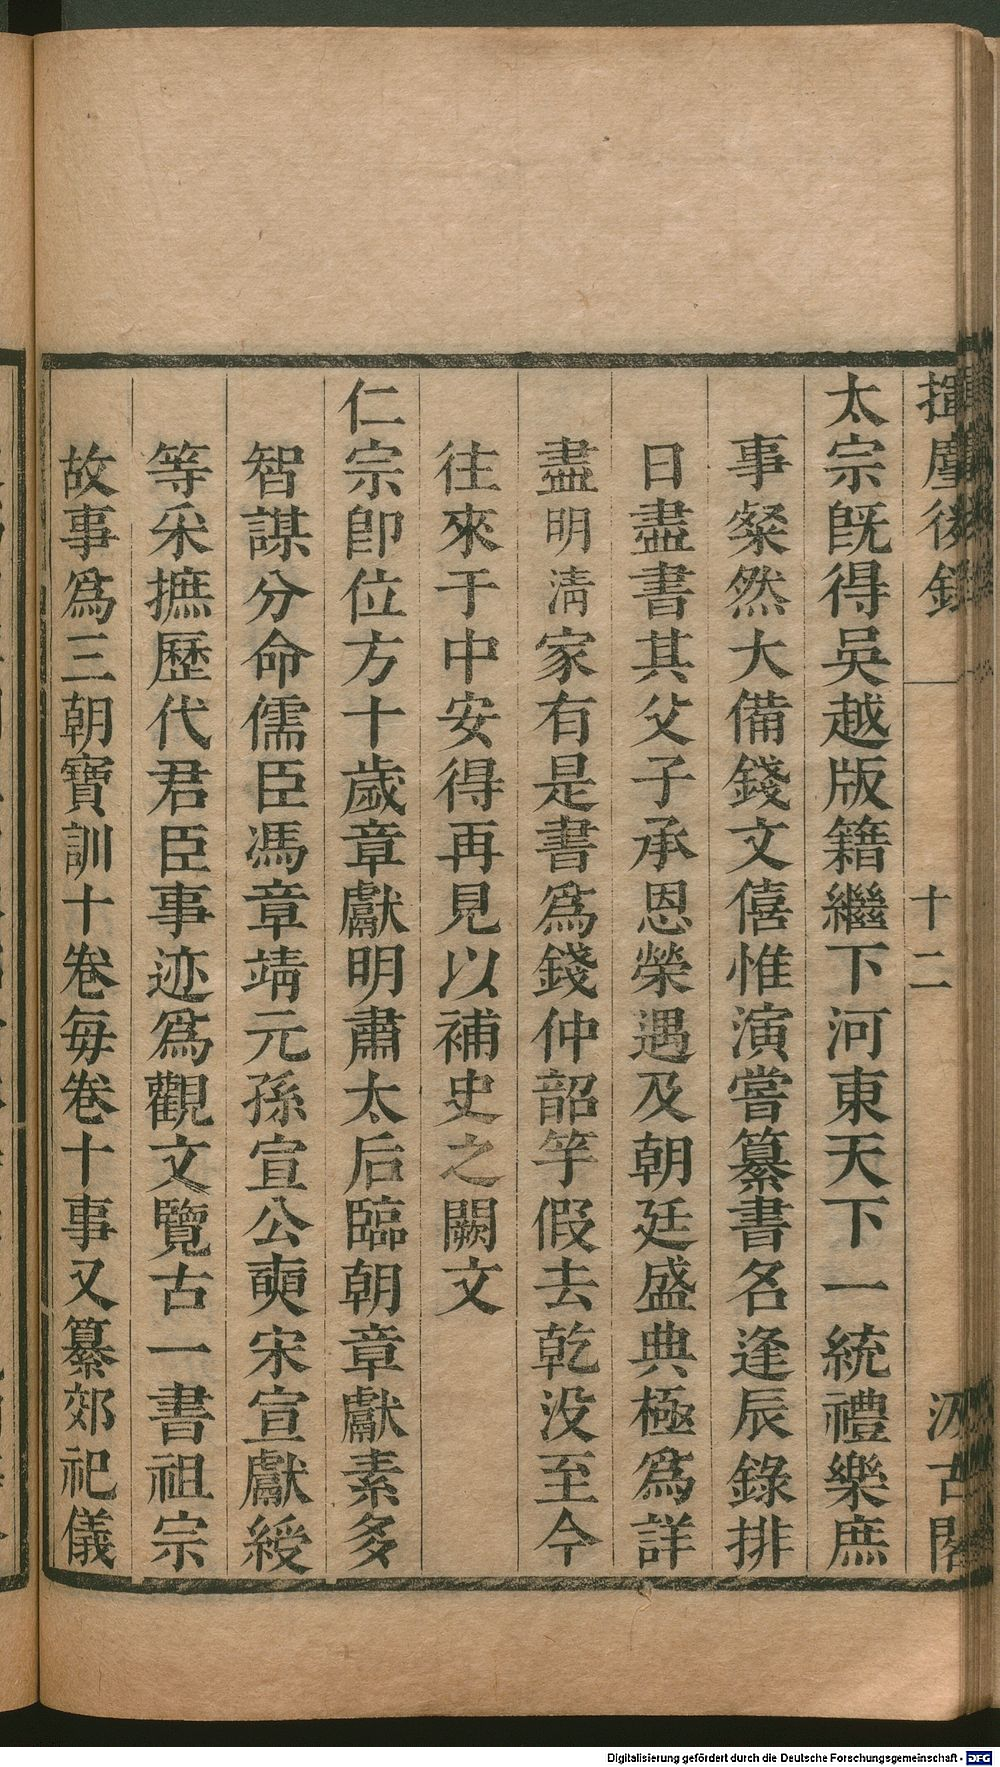 揮麈後錄 一 十二 汲古閣
太宗旣得吳越版籍繼下河東天下一統禮樂庶
事粲然大備錢文僖惟演嘗纂書名逢辰錄排
日盡書其父子承恩榮遇及朝廷盛典極爲詳
盡明淸家有是書爲錢仲韶竽假去乾没至今
往來于中安得再見以補史之闕文
仁宗卽位方十歲章獻明肅太后臨朝章獻素多
智謀分命儒臣馮章靖元孫宣公奭宋宣獻綬
等采摭歷代君臣事迹爲觀文覽古一書祖宗
故事爲三朝寶訓十卷每卷十事又纂郊祀儀
Digitalisierung gefördert durch die Deutsche Forschungsgemeinschaft - DFG